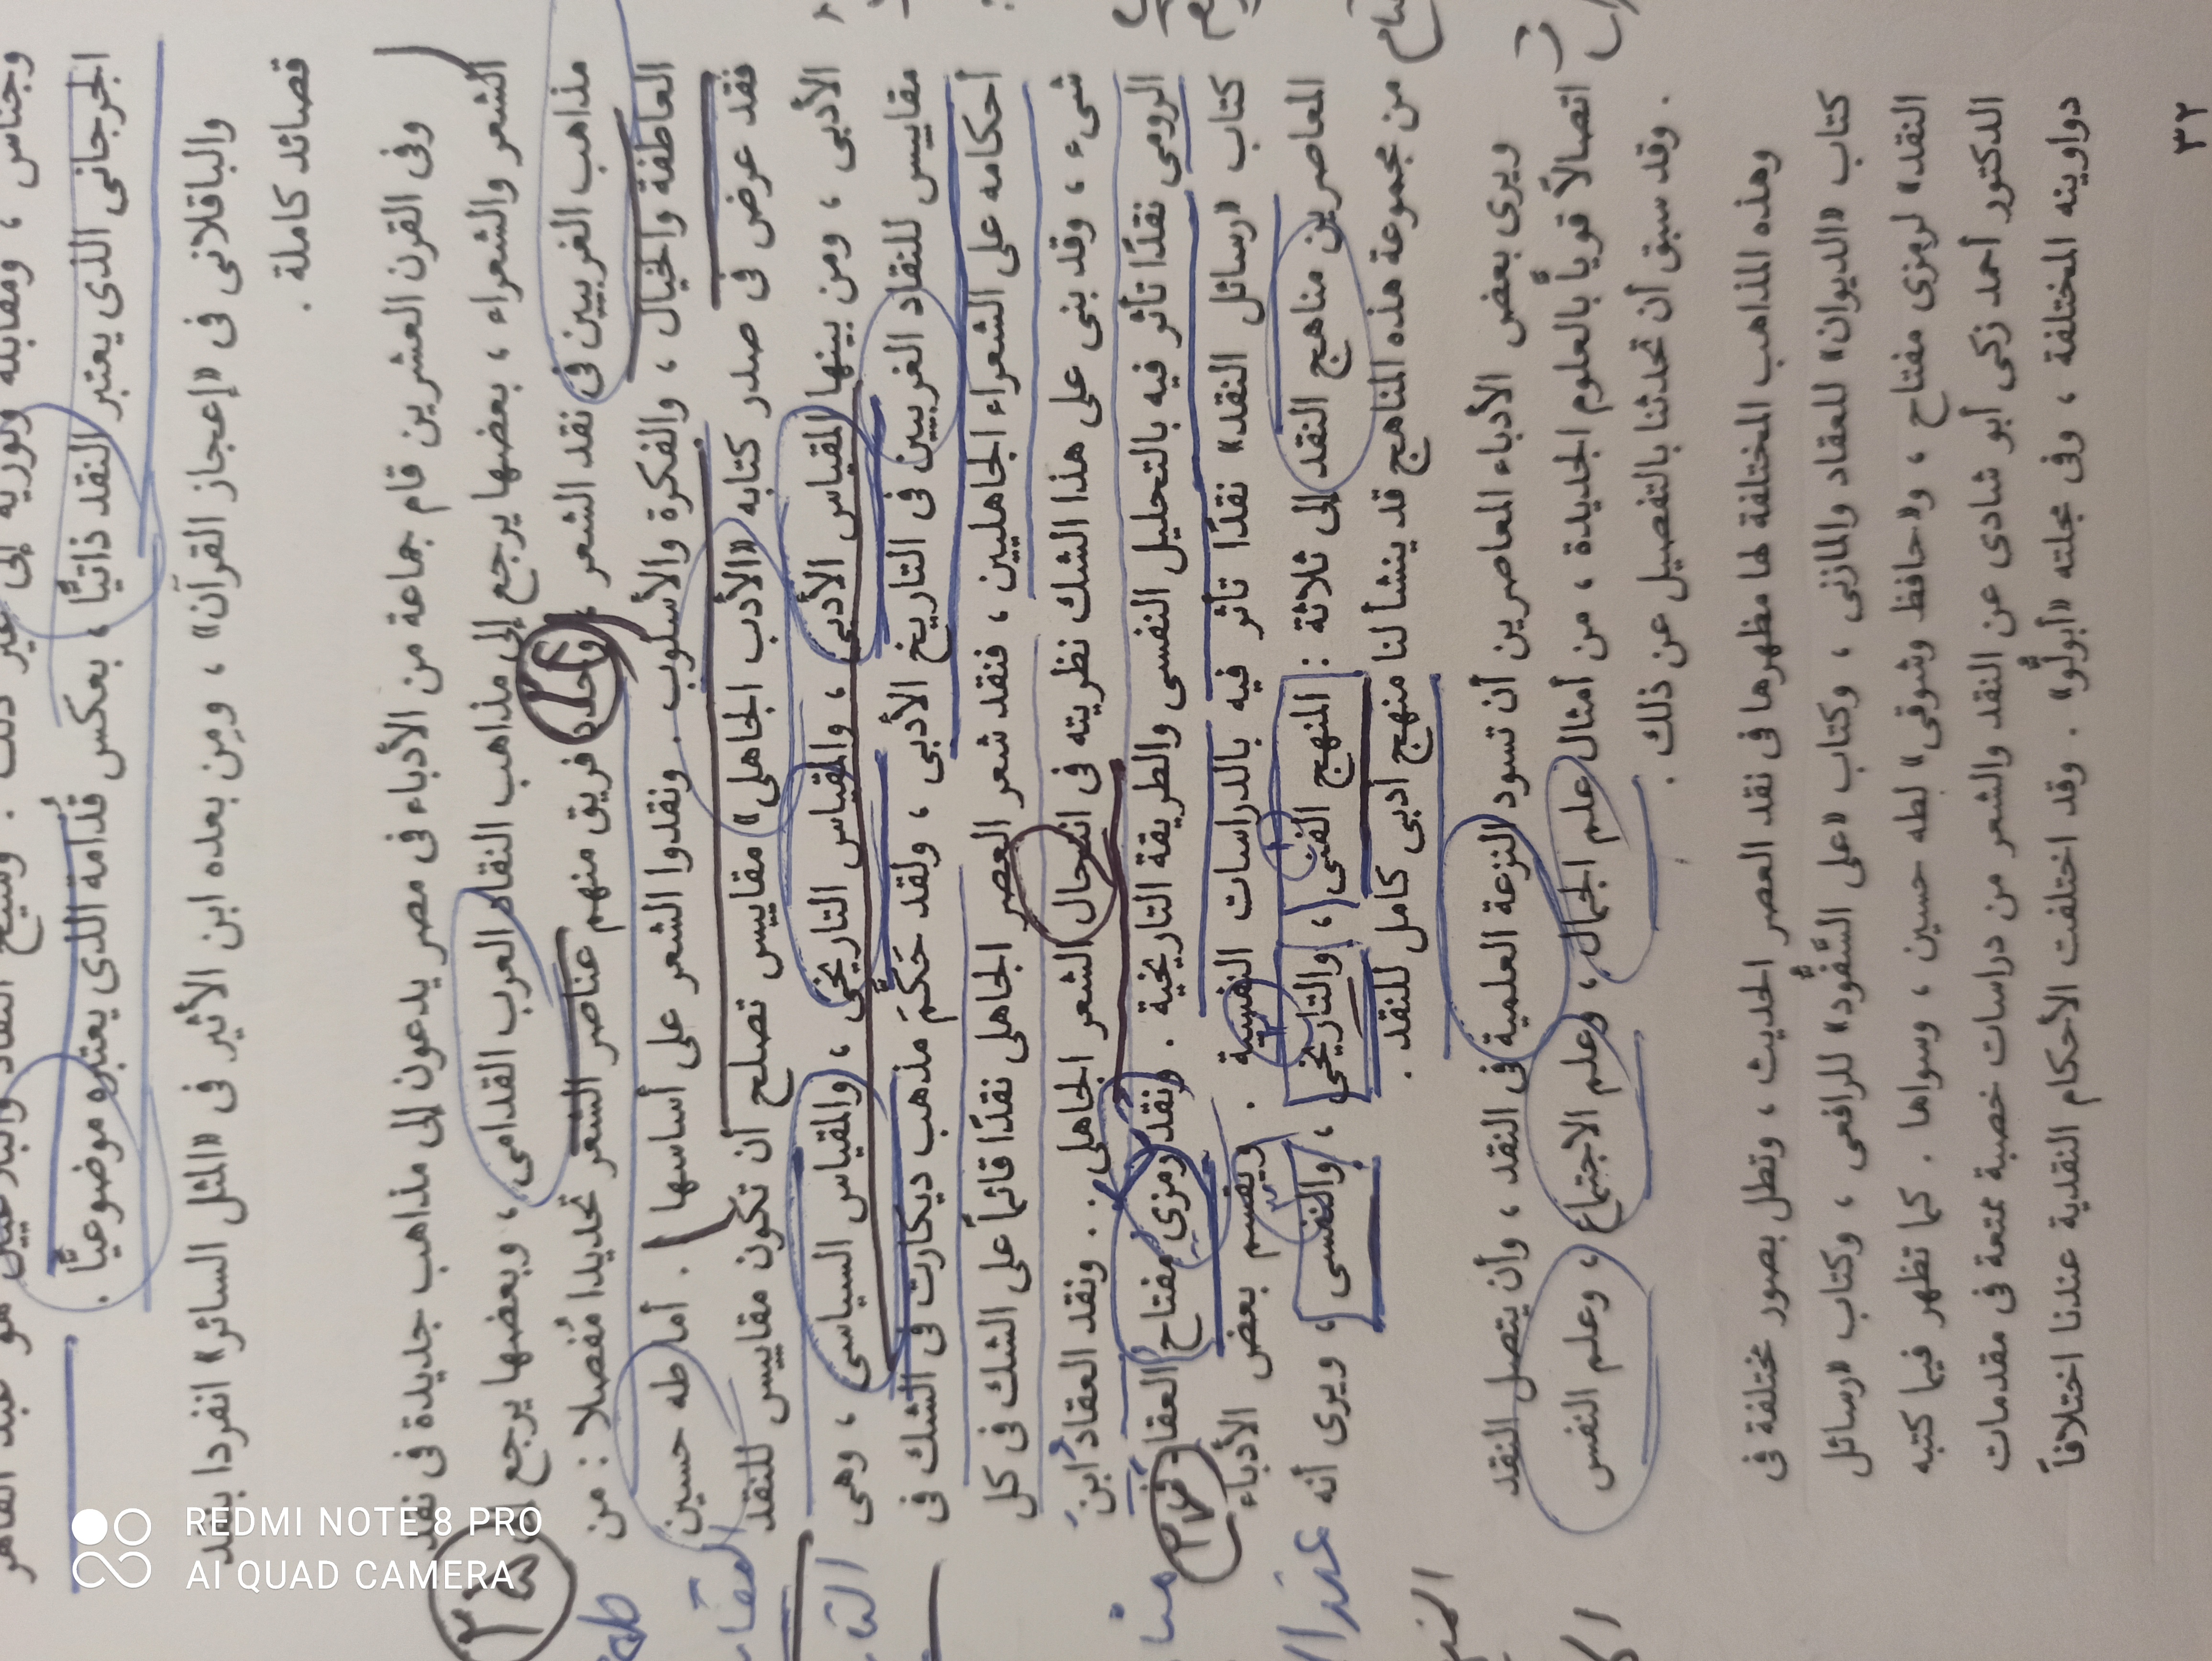 وجناس ، ومقابلة وتورية إلى غير ذلك .
الجرجانى الذى يعتبر النقد ذاتيًّا ، بعكس قُدَامة الذى يعتبره موضوعيًّا .
والباقلانى فى «إعجاز القرآن» ، ومِن بعده ابن الأثير فى «المثل السائر» انفردا بنقد
قصائد كاملة .
وفى القرن العشرين قام جماعة من الأدباء فى مصر يدعون إلى مذاهب جديدة فى نقد
الشعر والشعراء ، بعضها يرجع إلى مذاهب النقاد العرب القدامى ، وبعضها يرجع إلى
مذاهب الغربيين فى نقد الشعر ، وحدد فريق منهم عناصر الشعر تحديدا مُفصلا : من
العاطفة والخيال ، والفكرة والأسلوب . ونقدوا الشعر على أساسها . أما طه حسين
فقد عرض فى صدر كتابه «الأدب الجاهلى» مقاييس تصلح أن تكون مقاييس للنقد
الأدبى ، ومن بينها المقياس الأدبى ، والمقياس التاريخى ، والمقياس السياسى ، وهى
مقاييس للنقاد الغربيين فى التاريخ الأدبى ، ولقد حَكَّمَ مذهب ديكارت فى الشك فى
أحكامه على الشعراء الجاهليين ، فنقد شعر العصر الجاهلى نقدًا قائماً على الشك فى كل
شىء ، وقد بنى على هذا الشك نظريته فى انتحال الشعر الجاهلى .. ونقد العقادُ ابنَ
الرومى نقدًا تأثر فيه بالتحليل النفسى والطريقة التاريخية . ونقد رمزى مفتاح العقاد فى
كتاب «رسائل النقد» نقدًا تأثر فيه بالدراسات النفسية . ويقسم بعض الأدباء
المعاصرين مناهج النقد إلى ثلاثة : المنهج الفنى ، والتاريخى ، والنفسى ، ويرى أنه
من مجموعة هذه المناهج قد ينشأ لنا منهج أدبى كامل للنقد .
ويرى بعض الأدباء المعاصرين أن تسود النزعة العلمية فى النقد ، وأن يتصل النقد
اتصالاً قوياً بالعلوم الجديدة ، من أمثال علم الجمال ، وعلم الاجتماع ، وعلم النفس
. وقد سبق أن تحدثنا بالتفصيل عن ذلك .
وهذه المذاهب المختلفة لها مظهرها فى نقد العصر الحديث ، وتطل بصور مختلفة فى
كتاب «الديوان» للعقاد والمازنى ، وكتاب «على السَّفُّود» للرافعى ، وكتاب «رسائل
النقد» لرمزى مفتاح ، و«حافظ وشوقى» لطه حسين ، وسواها . كما تظهر فيما كتبه
الدكتور أحمد زكى أبو شادى عن النقد والشعر من دراسات خصبة ممتعة فى مقدمات
دواوينه المختلفة ، وفى مجلته «أبولُّو» . وقد اختلفت الأحكام النقدية عندنا اختلافاً
٣٢
REDMI NOTE 8 PRO
AI QUAD CAMERA